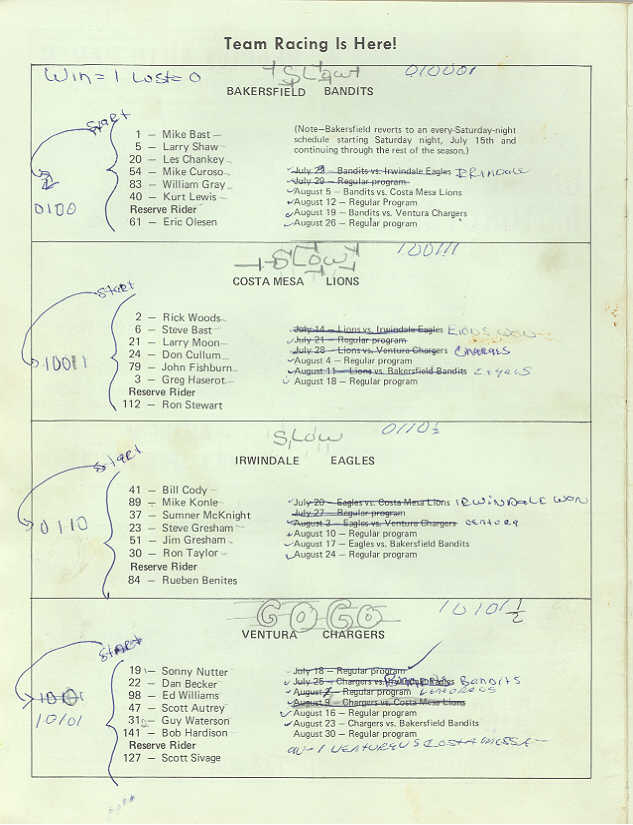 Team Racing Is Here!
Win = 1 Lost = 0 SLow 010001
BAKERSFIELD BANDITS
START
1 — Mike Bast
5 — Larry Shaw
20 — Les Chankey
54 — Mike Curoso
83 — William Gray
40 — Kurt Lewis
Reserve Rider
61 — Eric Olesen
2
0100
(Note—Bakersfield reverts to an every-Saturday-night
schedule starting Saturday night, July 15th and
continuing through the rest of the season.)
— Bandits vs. Irwindale Eagles IRINDALE
July 29 — Regular program
August 5 — Bandits vs. Costa Mesa Lions
August 12 — Regular Program
August 19 — Bandits vs. Ventura Chargers
August 26 — Regular program
SLOW 100111
COSTA MESA LIONS
START
2 — Rick Woods
6 — Steve Bast
21 — Larry Moon
24 — Don Cullum
79 — John Fishburn
3 — Greg Haserot
Reserve Rider
112 — Ron Stewart
10011
July 14 — Lions vs. Irwindale Eagles LIONS WON
July 21 — Regular program
July 28 — Lions vs. Ventura Chargers
August 4 — Regular program
August 11 — Lions vs. Bakersfield Bandits
August 18 — Regular program
SLOW 0110½
IRWINDALE EAGLES
START
41 — Bill Cody
89 — Mike Konle
7 — Sumner McKnight
23 — Steve Gresham
51 — Jim Gresham
30 — Ron Taylor
Reserve Rider
84 — Rueben Benites
0110
July 20 — Eagles vs. Costa Mesa Lions IRWINDALE WON
July 27 — Regular program
August 3 — Eagles vs. Ventura Chargers ventura
August 10 — Regular program
August 17 — Eagles vs. Bakersfield Bandits
August 24 — Regular program
GO GO 10101½
VENTURA CHARGERS
START
19 — Sonny Nutter
22 — Dan Becker
98 — Ed Williams
47 — Scott Autrey
31 — Guy Waterson
141 — Bob Hardison
Reserve Rider
127 — Scott Sivage
10101
July 18 — Regular program
July 25 — Chargers vs. Bandits
August — Regular program
August 9 — Chargers vs. Costa Mesa Lions
August 16 — Regular program
August 23 — Chargers vs. Bakersfield Bandits
August 30 — Regular program